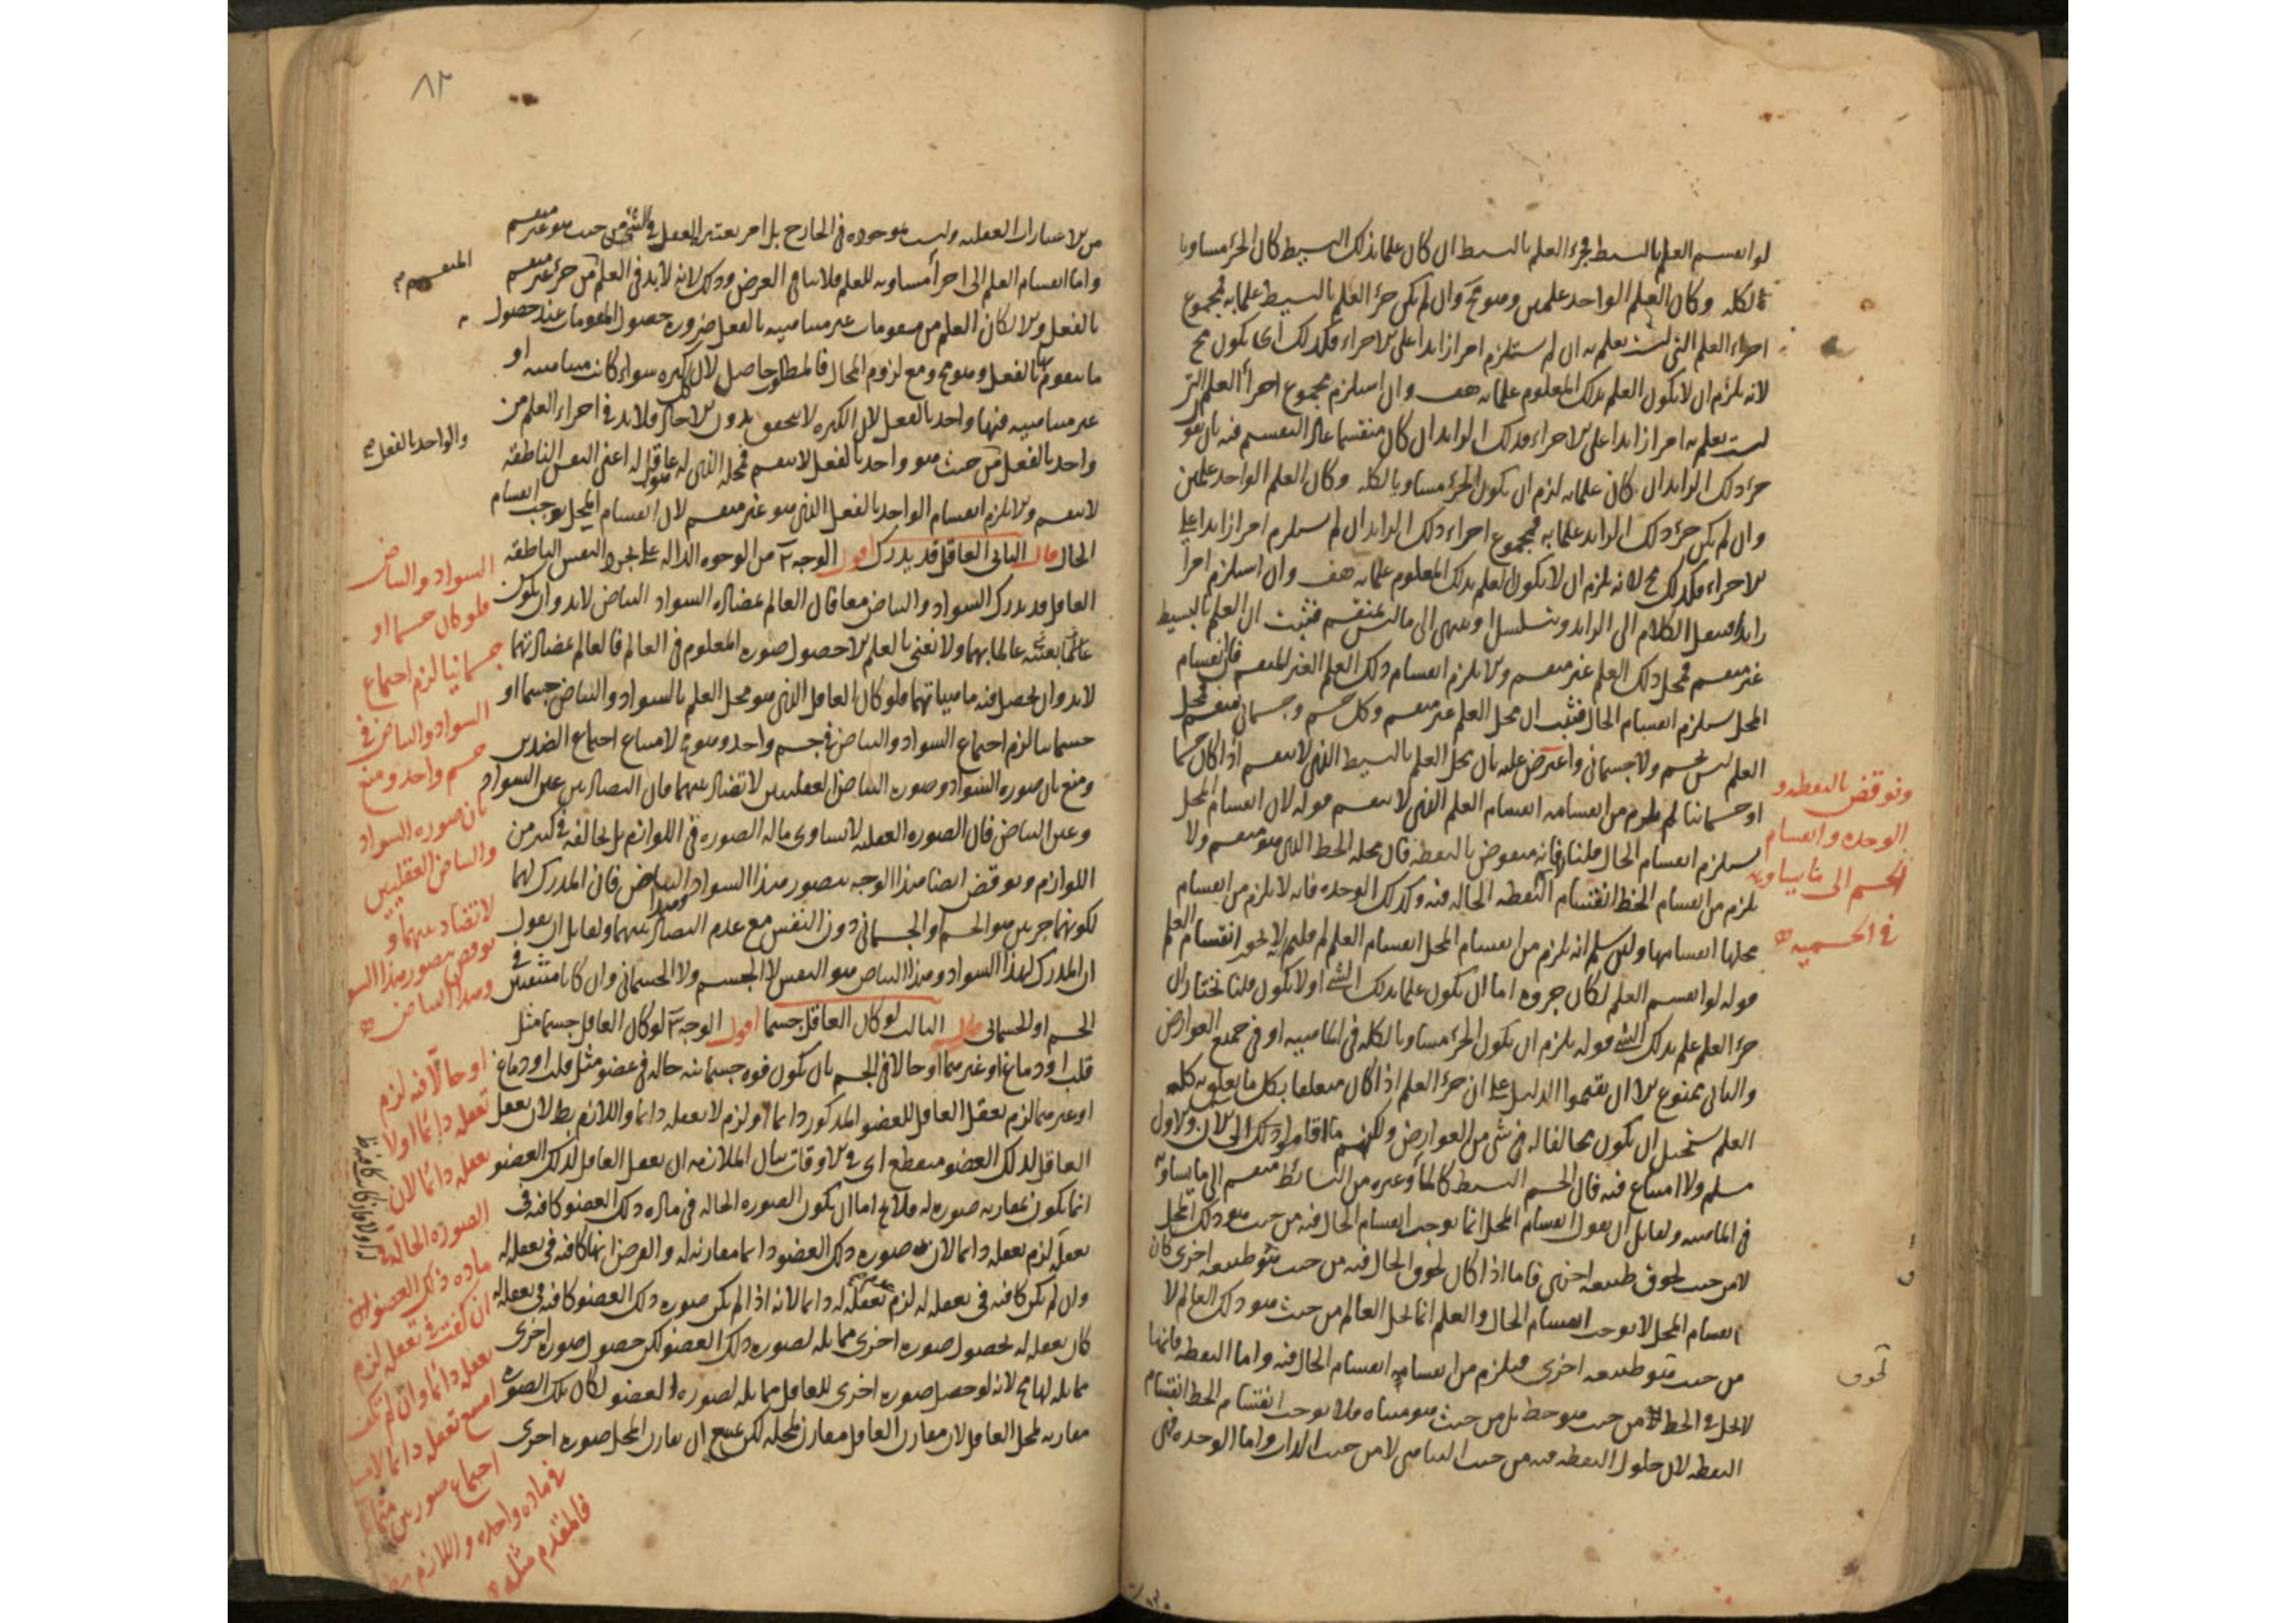 لو انقسم العلم بالبسيط فجزء العلم بالبسيط ان كان علما بذلك البسيط كان الجزء مساويا
لكله وكان العلم الواحد علمين وهو مح وان لم يكن جزء العلم بالبسيط علما به فمجموع
اجزاء العلم التى ليست بعلم به ان لم يستلزم امرا زايدا على الاجزاء فكذلك اى يكون مح
لانه يلزم ان لا يكون العلم بذلك المعلوم علما به هف وان استلزم مجموع اجزأ العلم التى
ليست بعلم به امرا زايدا على الاجزاء فذلك الزايد ان كان منقسما عاد التقسيم فيه بان نقول
جزء ذلك الزايد ان كان علما به لزم ان يكون الجزء مساويا لكله وكان العلم الواحد علمين
وان لم يكن جزء ذلك الزايد علما به فمجموع اجزاء ذلك الزايد ان لم يستلزم امرا زايدا على
الاجزاء فكذلك مح لانه يلزم ان لا يكون العلم بذلك المعلوم علما به هف وان استلزم امرا
زايدا ننقل الكلام الى الزايد ويتسلسل او ينتهى الى ما ليس بمنقسم فثبت ان العلم بالبسيط
غير منقسم فمحل ذلك العلم غير منقسم والا يلزم انقسام ذلك العلم الغير المنقسم فان انقسام
المحل يستلزم انقسام الحال فثبت ان محل العلم غير منقسم وكل جسم وجسمانى منقسم فمحل
العلم ليس بجسم ولا جسمانى واعترض عليه بان محل العلم بالبسيط الذى لا ينقسم اذا كان جسما
او جسمانيا لم يلزم من انقسامه انقسام العلم الذى لا ينقسم قوله لان انقسام المحل
يستلزم انقسام الحال قلنا فانه منقوض بالنقطة فان محله الخط الذى هو منقسم ولا
يلزم من انقسام الخط انقسام النقطة الحالة فيه وكذلك الوحدة فانه لا يلزم من انقسام
محلها انقسامها ولئن سلم انه يلزم من انقسام المحل انقسام العلم لم قلتم انه لا يجوز انقسام العلم
قوله لو انقسم العلم لكان جزوه اما ان يكون علما بذلك الشئ او لا يكون قلنا نختار ان
جزء العلم علم بذلك الشئ قوله يلزم ان يكون الجزء مساويا لكله فى الماهيه او فى جميع العوارض
والثانى ممنوع الا ان تقيموا الدليل على ان جزء العلم اذا كان متعلقا بكل ما تعلق به كله
العلم يستحيل ان يكون مخالفا له فى شئ من العوارض ولكنهم ما اقاموا ذلك الى الآن والاول
مسلم ولا امتناع فيه فان الجسم البسيط كالمأ وغيره من البسائط منقسم الى ما يساويه
فى الماهيه ولقايل ان يقول انقسام المحل انما يوجب انقسام الحال فيه من حيث هو ذلك المحل
لا من حيث لحوق طبيعه اخرى فاما اذا كان لحوق الحال فيه من حيث هو طبيعه اخرى فان
انقسام المحل لا يوجب انقسام الحال والعلم انما يحل العالم من حيث هو ذلك العالم لا
من حيث هو طبيعه اخرى فيلزم من انقسامه انقسام الحال فيه واما النقطه فانها
لا تحل فى الخط من حيث هو خط بل من حيث هو متناه فلا يوجب انقسام الخط انقسام
النقطه لان حلول النقطه فيه من حيث التناهى لا من حيث الذات واما الوحده فهى
ونوقض بالنقطه و
الوحده وانقسام
الجسم الى ما يساويه
فى الجسميه
٨٢
من الاعتبارات العقليه وليست موجوده فى الخارج بل امر يعتبره العقل فى الشئ من حيث هو غير منقسم
واما انقسام العلم الى اجزأ مساويه للعلم فلا ينافى الغرض وذلك لانه لا بد فى العلم من جزء غير منقسم
بالفعل والا لكان العلم من مقومات غير متناهيه بالفعل ضروره حصول المقومات عند حصول
ما يتقوم بها بالفعل وهو مح ومع لزوم المحال فالمطلوب حاصل لان كل كثره سواء كانت متناهيه او
غير متناهيه فيها واحد بالفعل لان الكثره لا تتحقق بدون الاحاد فلا بد فى اجزاء العلم من
واحد بالفعل من حيث هو واحد بالفعل لا ينقسم فمحله الذى له عاقل له اعنى النفس الناطقه
لا ينقسم والا يلزم انقسام الواحد بالفعل الذى هو غير منقسم لان انقسام المحل يوجب انقسام
الحال قال الثانى العاقل قد يدرك اقول الوجه ٢ من الوجوه الداله على تجرد النفس الناطقه
العاقل قد يدرك السواد والبياض معا فان العالم بمضاده السواد البياض لا بد وان يكون
عالما بعينه عالما بهما ولا نعنى بالعلم الا حصول صوره المعلوم فى العالم فالعالم بمضادتهما
لا بد وان يحصل فيه ماهياتهما فلو كان العاقل الذى هو محل العلم بالسواد والبياض جسما او
جسمانيا لزم اجتماع السواد والبياض فى جسم واحد وهو مح لامتناع اجتماع الضدين
ومنع بان صوره السواد وصوره البياض العقليتين لا تضاد بينهما فان التضاد بين عين السواد
وعين البياض فان الصوره العقليه لا تساوى ما له الصوره فى اللوازم بل تخالفه فى كثير من
اللوازم ونوقض ايضا هذا الوجه بتصور هذا السواد وهذا البياض فان المدرك لهما
لكونهما جزئين هو الجسم او الجسمانى دون النفس مع عدم التضاد بينهما ولقايل ان يقول
ان المدرك لهذا السواد وهذا البياض هو النفس لا الجسم ولا الجسمانى وان كانا منتقشين فى
الجسم او الجسمانى قال الثالث لو كان العاقل جسما اقول الوجه ٣ لو كان العاقل جسما مثل
قلب او دماغ او غيرهما او حالا فى الجسم بان يكون قوه جسمانيه حاله فى عضو مثل قلب او دماغ
او غيرهما لزم تعقل العاقل للعضو المذكور دائما او لزم لا تعقله دائما واللازم بط لان تعقل
العاقل لذلك العضو منقطع اى فى الاوقات بيان الملازمه ان تعقل العاقل لذلك العضو
انما يكون بمقارنه صوره له فلا يخ اما ان يكون الصوره الحاله فى ماده ذلك العضو كافيه فى
تعقله لزم تعقله دائما لان صوره ذلك العضو دائما مقارنه له والفرض انها كافيه فى تعقله له
وان لم يكن كافيه فى تعقله له لزم عدم تعقله له دائما لانه اذا لم يكن صوره ذلك العضو كافيه فى تعقله له
كان تعقله له بحصول صوره اخرى مماثله لصوره ذلك العضو لكن حصول صوره اخرى
مماثله لها مح لانه لو حصل صوره اخرى للعاقل مماثله لصوره العضو لكان تلك الصوره
مقارنه لمحل العاقل لان مقارن العاقل مقارن لمحله لكن يمتنع ان يقارن المحل صوره اخرى
المنقسم
والواحد بالفعل
السواد والبياض
فلو كان جسما او
جسمانيا لزم اجتماع
السواد والبياض فى
جسم واحد ومنع
بان صوره السواد
والبياض العقليتين
لا تضاد بينهما و
نوقض بتصور هذا السو
وهذا البياض
او حالا فيه لزم
تعقله دائما او لا
تعقله دائما لان
الصوره الحاله فى
ماده ذلك العضو
ان كفت فى تعقله لزم
تعقله دائما وان لم تكف
امتنع تعقله دائما لامتـ
اجتماع صورتين
فى ماده واحده واللازم بط
فالمقدم مثله